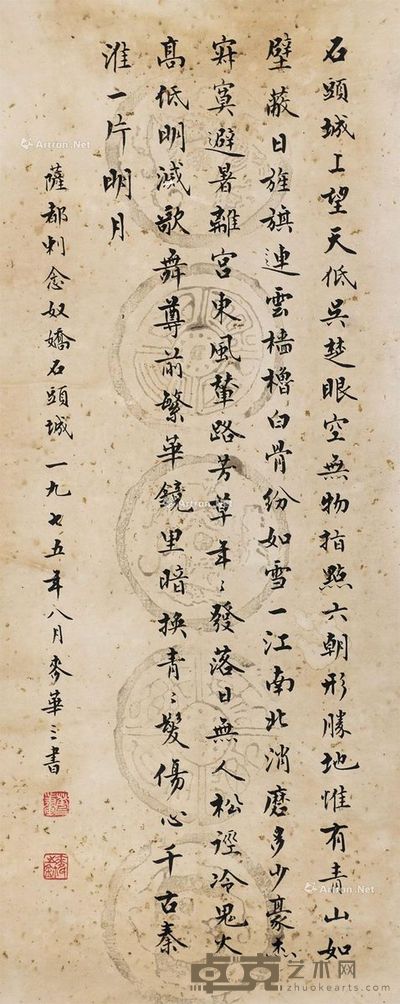 石頭城上望天低吳楚眼空無物指點六朝形勝地惟有青山如
壁蔽日旌旗連雲檣櫓白骨紛如雪一江南北消磨多少豪杰
寂寞避暑離宮東風輦路芳草年々發落日無人松徑冷鬼火
高低明滅歌舞尊前繁華鏡里暗換青々髮傷心千古秦
淮一片明月
薩都剌念奴嬌石頭城 一九七五年八月麥華三書
Artron.Net
Artron.Net
Artron.Net
Artron.Net
Artron.Net
卓克艺术网
zhuokearts.com